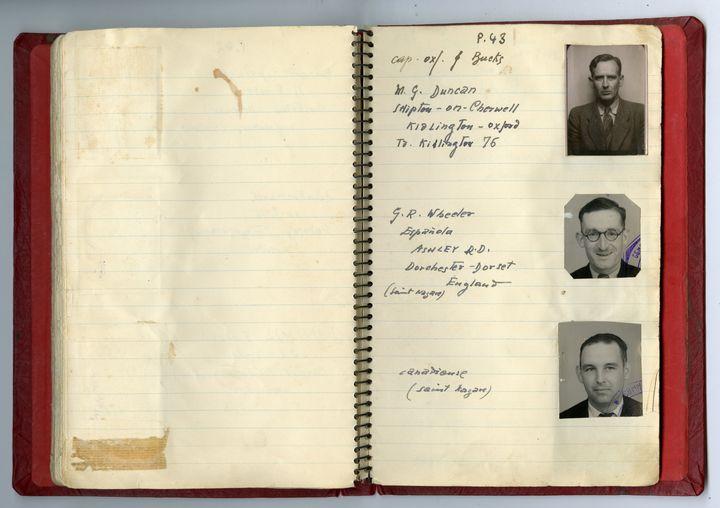 P.43
Cap. Oxf. & Bucks
M. G. Duncan
Shipton-on-Cherwell
Kidlington-Oxford
Te. Kidlington 76
G. R. Wheeler
Española
Ashley R.D.
Dorchester-Dorset
England
(Saint Nazare)
canadiense
(saint nazare)